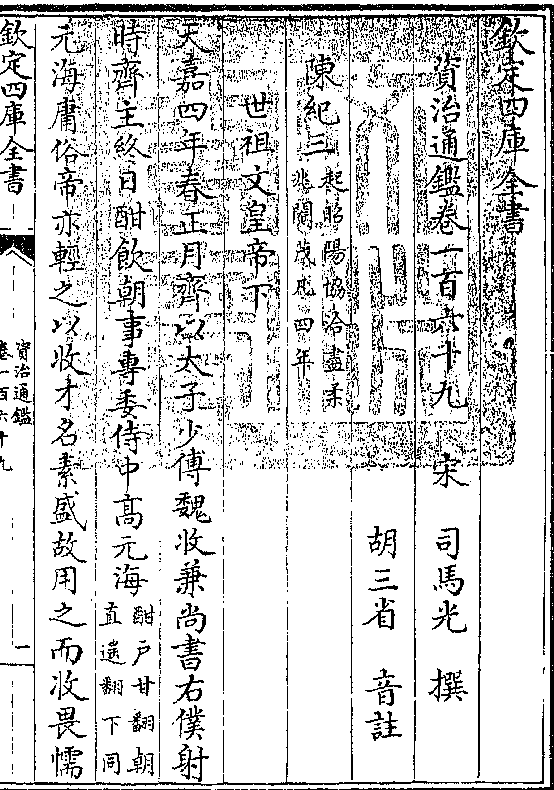 欽定四庫全書
資治通鑑卷一百六十九
宋 司馬光 撰
胡三省 音註
陳紀三起昭陽協洽盡柔兆閹茂凡四年
世祖文皇帝下
天嘉四年春正月齊以太子少傅魏收兼尚書右僕射
時齊主終日酣飲朝事專委侍中髙元海酣戸甘翻朝直遥翻下同
元海庸俗帝亦輕之以收才名素盛故用之而收畏懦
欽定四庫全書
資治通鑑
卷一百六十九
一